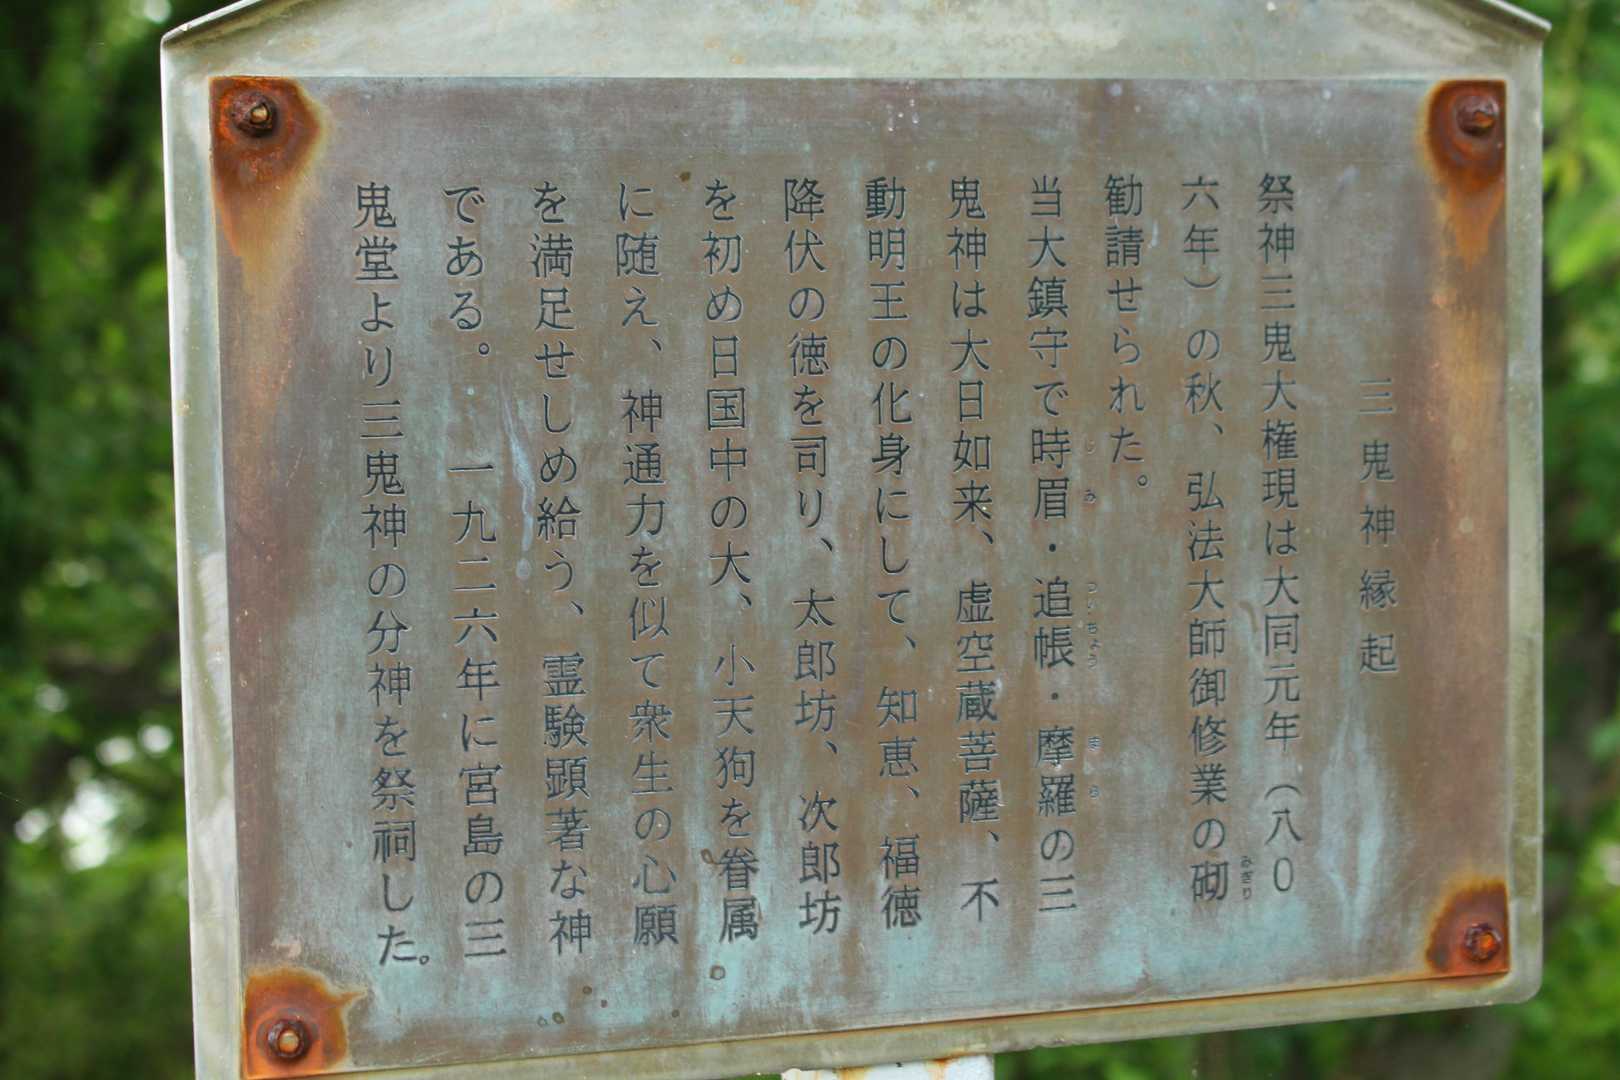 三鬼神縁起
祭神三鬼大権現は大同元年（八〇
六年）の秋、弘法大師御修業の砌
みぎり
勧請せられた。
当大鎮守で時眉・追帳・摩羅の三
じみ ついちょう まら
鬼神は大日如来、虚空蔵菩薩、不
動明王の化身にして、知恵、福徳
降伏の徳を司り、太郎坊、次郎坊
を初め日国中の大、小天狗を眷属
に随え、神通力を似て衆生の心願
を満足せしめ給う、霊験顕著な神
である。 一九二六年に宮島の三
鬼堂より三鬼神の分神を祭祠した。